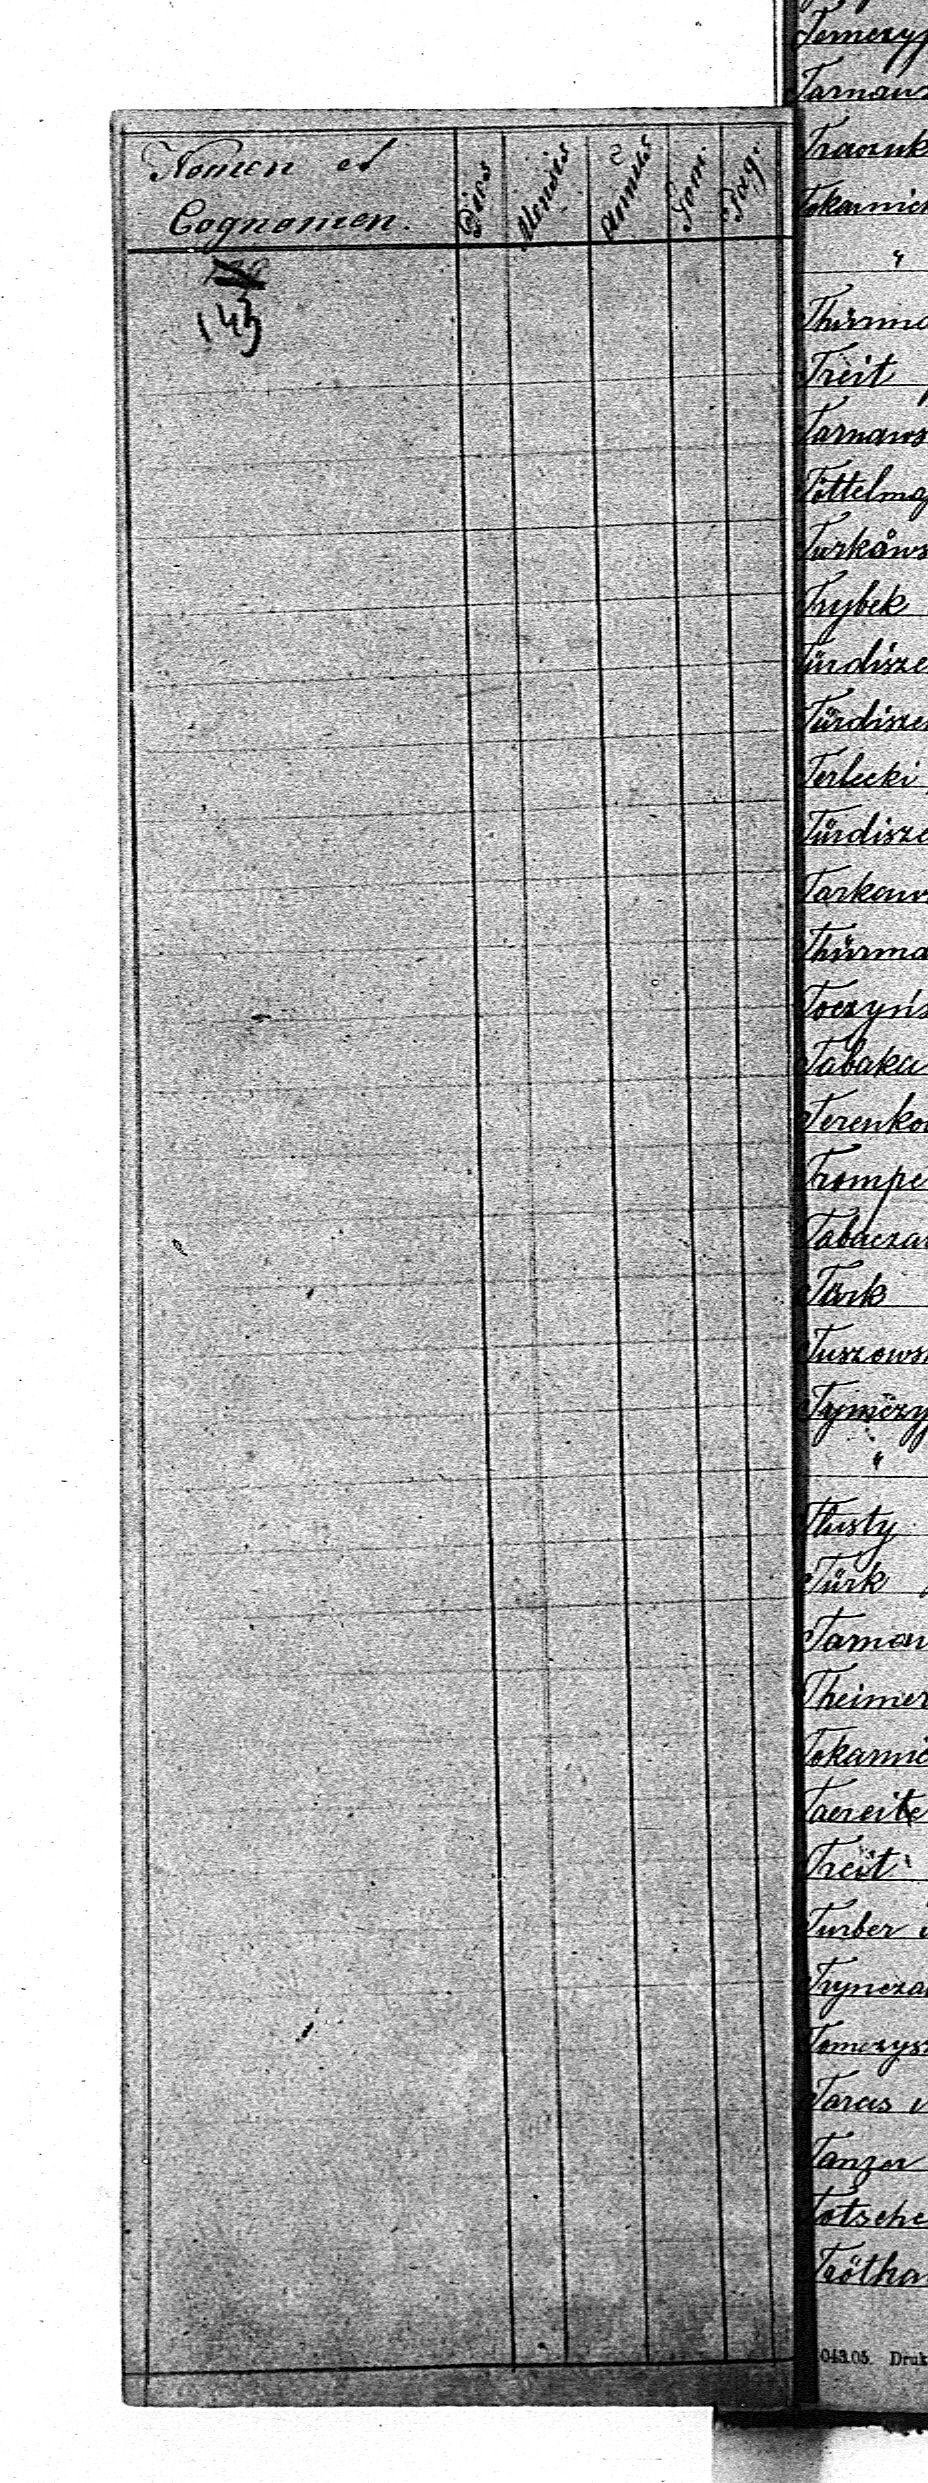 Nomen et
Cognomen.
Dies
Mensis
Annus
Tom.
Pag.
143
Temczysz
Tarnaws
Traczuk
Tokarnick
"
Thürma
Treit
Tarnaws
Töttelma
Turkows
Trybek
Türdisze
Türdisze
Terlecki
Türdisze
Tarkows
Thürma
Toczyńs
Tabaka
Terenko
Trompe
Tabacza
Türk
Tuszows
Tymczy
"
Tłusty
Türk
Tarnow
Theimer
Tokarnic
Treit
Turber
Tryncza
Tomczysz
Taras
Tanzer
Totsche
043.05. Druk